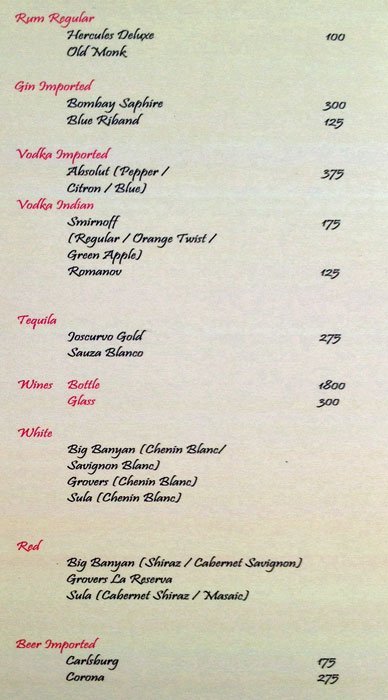 Rum Regular
Hercules Deluxe 100
Old Monk
Gin Imported
Bombay Saphire 300
Blue Riband 125
Vodka Imported
Absolut (Pepper / 375
Citron / Blue)
Vodka Indian
Smirnoff 175
(Regular / Orange Twist /
Green Apple)
Romanov 125
Tequila
Joscurvo Gold 275
Sauza Blanco
Wines Bottle 1800
Glass 300
White
Big Banyan (Chenin Blanc/
Savignon Blanc)
Grovers (Chenin Blanc)
Sula (Chenin Blanc)
Red
Big Banyan (Shiraz / Cabernet Savignon)
Grovers La Reserva
Sula (Cabernet Shiraz / Mosaic)
Beer Imported
Carlsburg 175
Corona 275